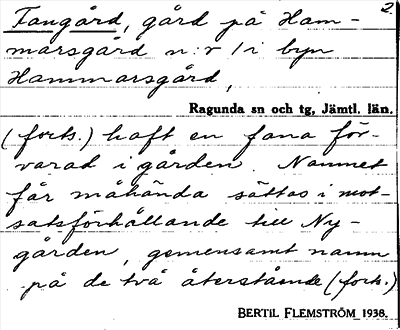 2.
Fangård, gård på Ham-
marsgård n:r 1 i byn
Hammarsgård,
Ragunda sn och tg, Jämtl. län.
(forts.) haft en fana för-
varad i gården. Namnet
får måhända sättas i mot-
satsförhållande till Ny-
gården, gemensamt namn
på de två återstående (forts.)
BERTIL FLEMSTRÖM 1938.